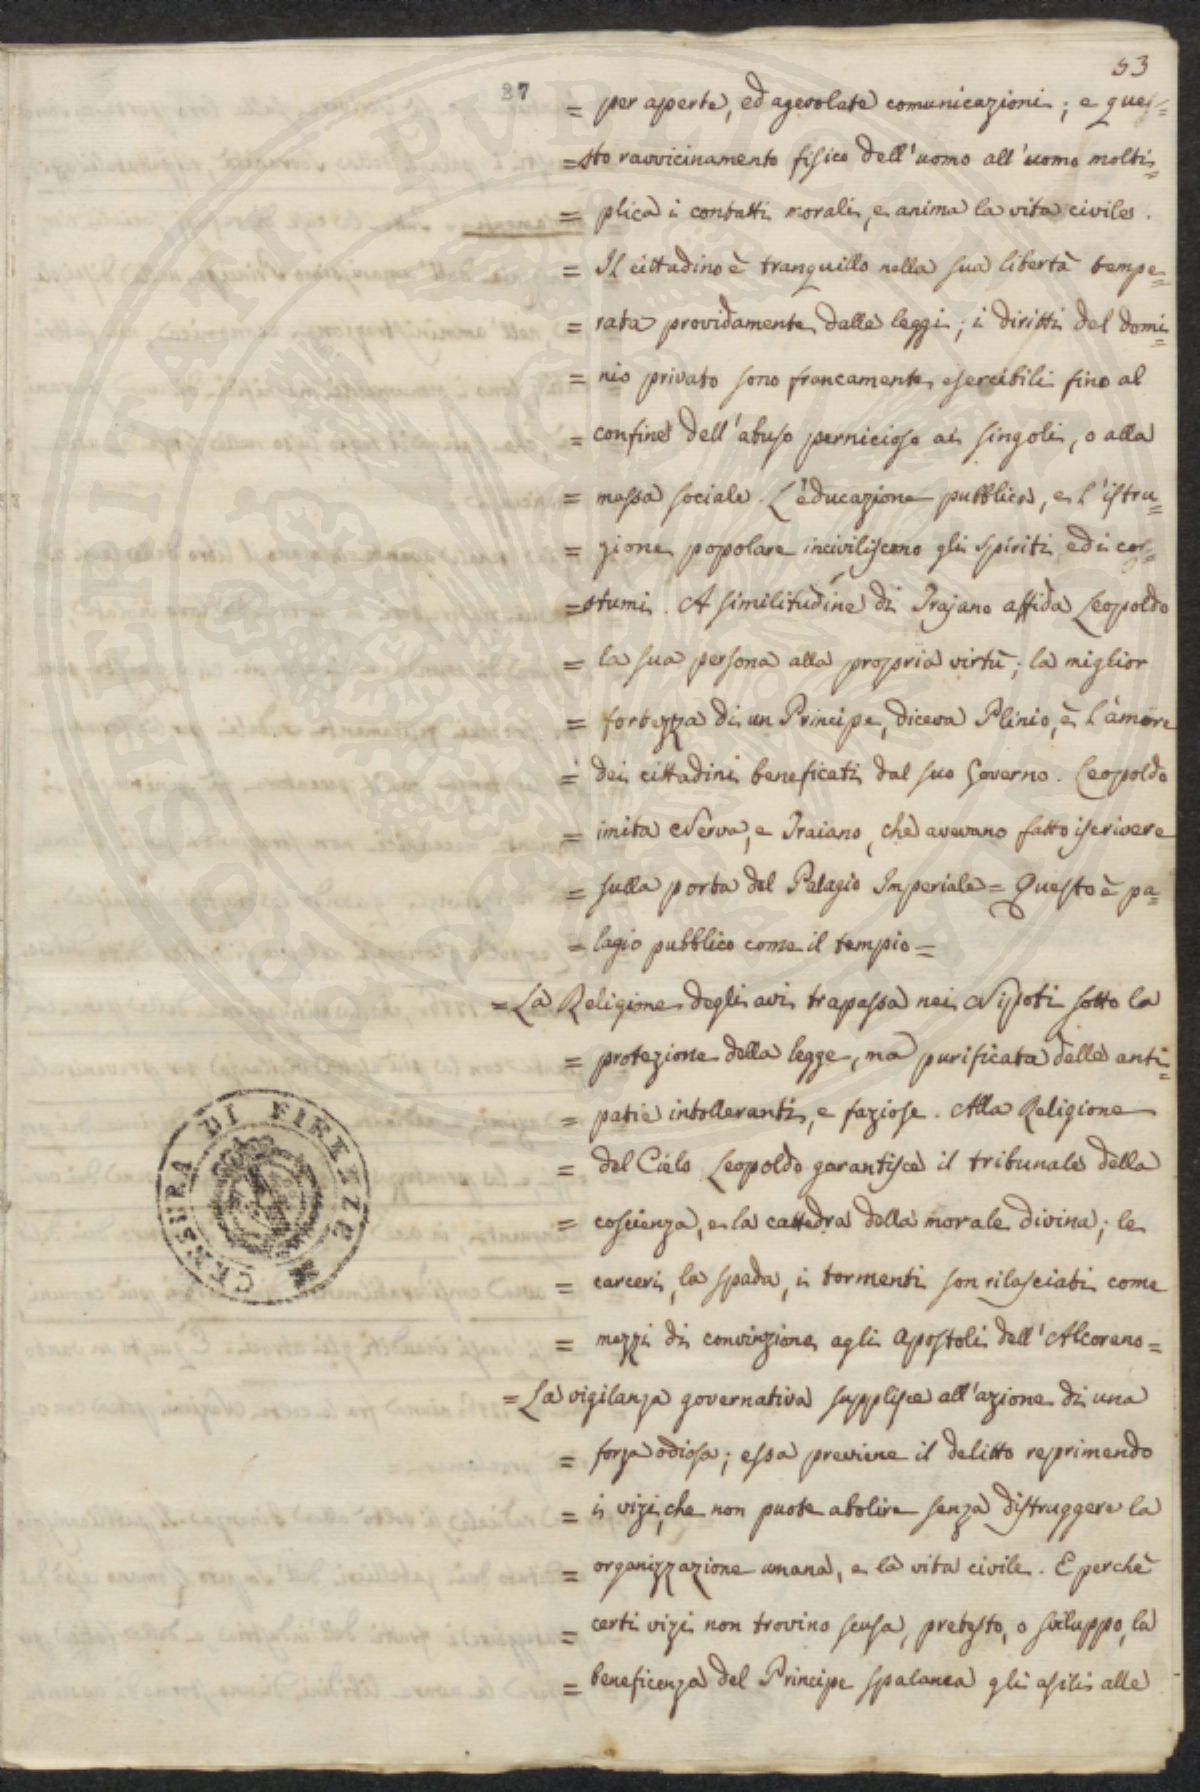 53
37
= per aperte, ed agevolate comunicazioni; e ques=
=sto ravvicinamento fisico dell'uomo all'uomo molti=
= plica i contatti morali, e anima la vita civile.
= Il cittadino è tranquillo nella sua libertà tempe=
= rata providamente dalle leggi; i diritti del domi=
= nio privato sono francamente esercibili fino al
= confine dell'abuso pernicioso ai singoli, o alla
= massa sociale. L'educazione pubblica, e l'istru=
= zione popolare inciviliscono gli spiriti ed i cos=
=stumi. A similitudine di Trajano affida Leopoldo
= la sua persona alla propria virtù; la miglior
= fortezza di un Principe, diceva Plinio, è l'amore
= dei cittadini beneficati dal suo Governo. Leopoldo
= imita Nerva, e Traiano, che avevano fatto iscrivere
= sulla porta del Palagio Imperiale = Questo è pa=
= lagio pubblico come il tempio =
= La Religione degli avi trapassa nei Nipoti sotto la
= protezione della legge, ma purificata delle anti=
= patie intolleranti, e faziose. Alla Religione
= del Cielo Leopoldo garantisce il tribunale della
= coscienza, e la cattedra della morale divina; le
= carceri, la spada, i tormenti son rilasciati come
= mezzi di convinzione agli Apostoli dell'Alcorano =
= La vigilanza governativa supplisce all'azione di una
= forza odiosa; essa previene il delitto reprimendo
= i vizi, che non puote abolire senza distruggere la
= organizzazione umana, e la vita civile. E perchè
= certi vizi non trovino scusa, pretesto, o sviluppo, la
= beneficenza del Principe spalanca gli asili alle
CENSURA DI FIRENZE